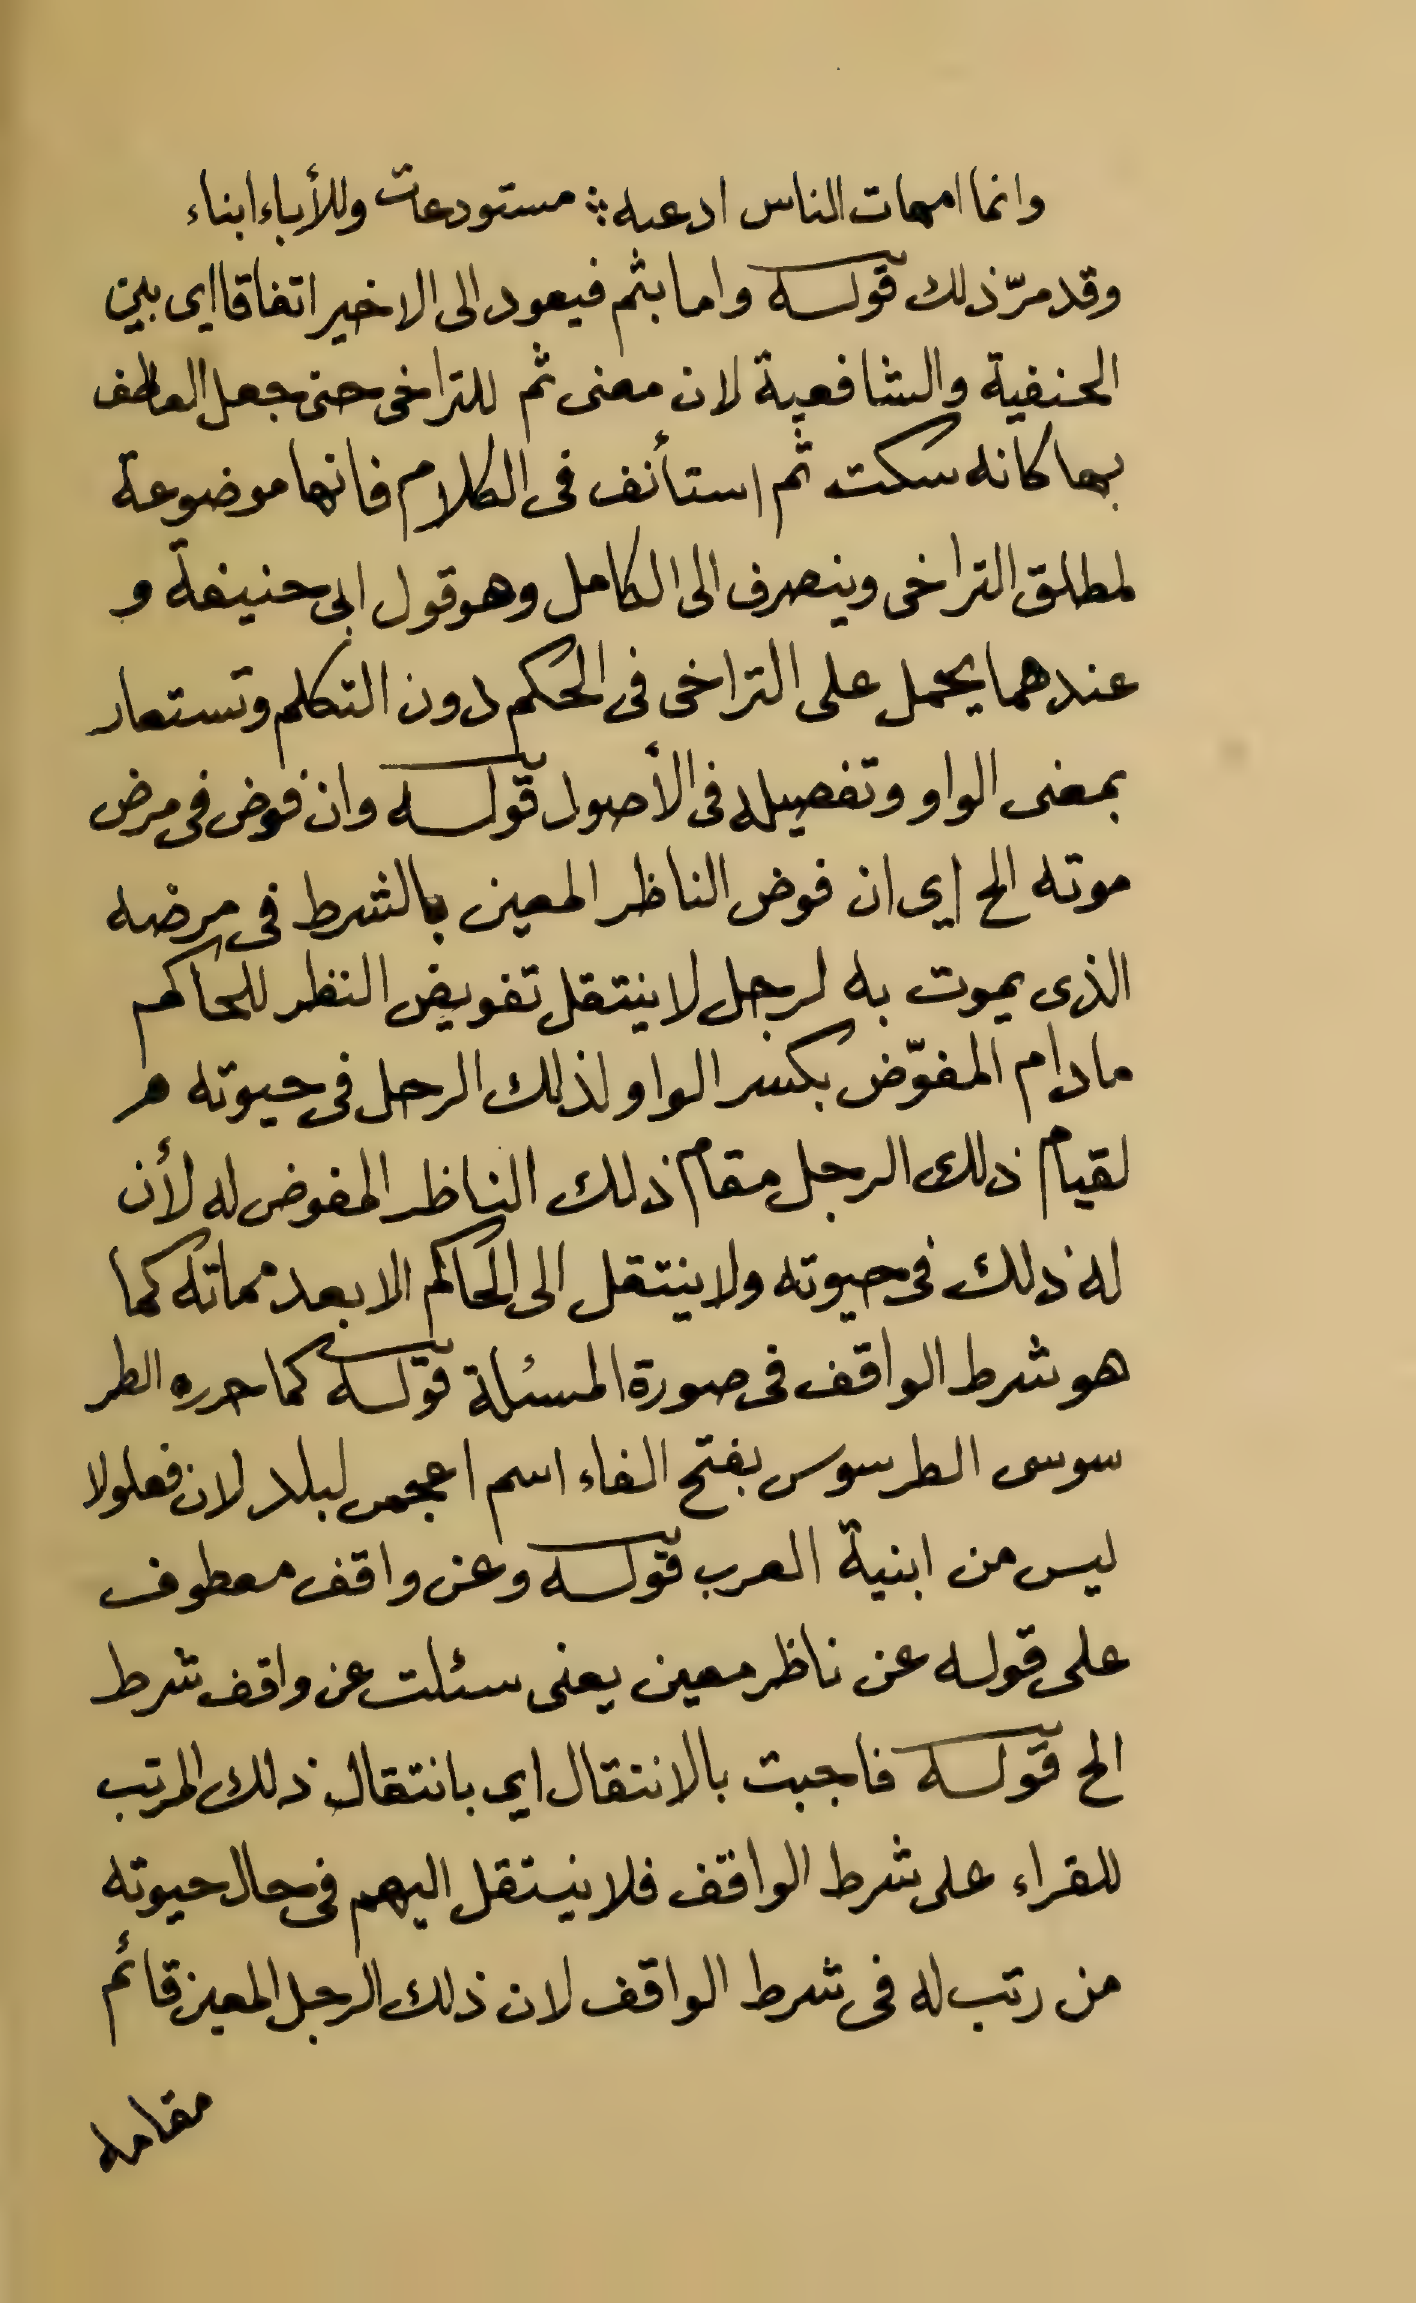 وانما امهات الناس ادعيه ؞ مستودعات وللأباء ابناء
وقد مرّ ذلك قوله واما بثم فيعود الى الاخير اتفاقا اى بين
الحنفية والشافعية لان معنى ثم للتراخى حتى جعل العاطف
بها كانه سكت ثم استأنف فى الكلام فانها موضوعة
لمطلق التراخى وينصرف الى الكامل وهو قول ابى حنيفة و
عندهما يحمل على التراخى فى الحكم دون التكلم وتستعار
بمعنى الواو وتفصيله فى الأصول قوله وان فوض فى مرض
موته الخ إي ان فوض الناظر المعين بالشرط فى مرضه
الذى يموت به لرجل لا ينتقل تفويض النظر للحاكم
مادام المفوّض بكسر الواو لذلك الرجل فى حيوته هر
لقيام ذلك الرجل مقام ذلك الناظر المفوض له لأن
له ذلك فى حيوته ولا ينتقل الى الحاكم الا بعد مماته كما
هو شرط الواقف فى صورة المسئلة قوله كما حرره الطر
سوسى الطرسوس بفتح الفاء اسم اعجمى لبلد لان فعلولا
ليس من ابنية العرب قوله وعن واقف معطوف
على قوله عن ناظر معين يعنى سئلت عن واقف شرط
الخ قوله فاجبت بالانتقال اى بانتقال ذلك المرتب
للقراء على شرط الواقف فلا ينتقل اليهم فى حال حيوته
من رتب له فى شرط الواقف لان ذلك الرجل المعين قائم
مقامه